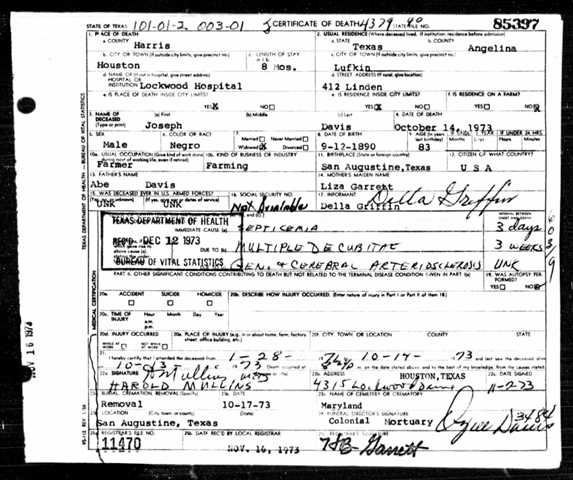 STATE OF TEXAS 101-01-2 003-01 CERTIFICATE OF DEATH 4379 STATE FILE NO. 85397
1. PLACE OF DEATH
a. COUNTY Harris
2. USUAL RESIDENCE (Where deceased lived. If institution: residence before admission)
a. STATE Texas b. COUNTY Angelina
b. CITY OR TOWN (If outside city limits, give precinct no.) Houston
c. LENGTH OF STAY in 1 b. 8 Mos.
c. CITY OR TOWN (If outside city limits, give precinct no.) Lufkin
d. NAME OF (If not in hospital, give street address) HOSPITAL OR INSTITUTION Lockwood Hospital
d. STREET ADDRESS (If rural, give location) 412 Linden
e. IS PLACE OF DEATH INSIDE CITY LIMITS? YES X NO
e. IS RESIDENCE INSIDE CITY LIMITS? YES X NO
f. IS RESIDENCE ON A FARM? YES NO X
3. NAME OF DECEASED (Type or print)
(a) First Joseph (b) Middle (c) Last Davis
4. DATE OF DEATH October 14, 1973
5. SEX Male
6. COLOR OR RACE Negro
7. Married Never Married Widowed X Divorced
8. DATE OF BIRTH 9-12-1890
9. AGE 83
IF UNDER 24 HRS.
10a. USUAL OCCUPATION (Give kind of work done during most of working life, even if retired) Farmer
10b. KIND OF BUSINESS OR INDUSTRY Farming
11. BIRTHPLACE San Augustine, Texas
12. CITIZEN OF WHAT COUNTRY? U S A
13. FATHER'S NAME Abe Davis
14. MOTHER'S MAIDEN NAME Liza Garrett
15. WAS DECEASED EVER IN U.S. ARMED FORCES? UNK UNK
16. SOCIAL SECURITY NO. Not Available
17. INFORMANT Della Griffin Della Griffin
TEXAS DEPARTMENT OF HEALTH
REC'D DEC 12 1973
BUREAU OF VITAL STATISTICS
IMMEDIATE CAUSE (a) SEPTICEMIA 3 days
DUE TO (b) MULTIPLE DECUBITAE 3 weeks
GEN. & CEREBRAL ARTERIOSCLEROSIS UNK
PART II. OTHER SIGNIFICANT CONDITIONS CONTRIBUTING TO DEATH BUT NOT RELATED TO THE TERMINAL DISEASE CONDITION GIVEN IN PART I(a)
19. WAS AUTOPSY PERFORMED? YES NO X
20a. ACCIDENT SUICIDE HOMICIDE
20b. DESCRIBE HOW INJURY OCCURRED. (Enter nature of injury in Part I or Part II of item 18)
20c. TIME OF INJURY Hour Month Day Year a.m. p.m.
20d. INJURY OCCURRED
20e. PLACE OF INJURY (e.g. in or about home, farm, factory, street, office building, etc.)
20f. CITY, TOWN OR LOCATION COUNTY STATE
21. I hereby certify that I attended the deceased from 1-28- 10-14- 73 and last saw the deceased alive
22a. SIGNATURE H Mullins MD
HAROLD MULLINS
22b. ADDRESS HOUSTON, TEXAS
4315 Lockwood
22c. DATE SIGNED 11-2-73
23a. BURIAL, CREMATION, REMOVAL (Specify) Removal
23b. DATE 10-17-73
23c. NAME OF CEMETERY OR CREMATORY Maryland
23d. LOCATION San Augustine, Texas
24. FUNERAL DIRECTOR'S SIGNATURE Colonial Mortuary
25a. REGISTRAR'S FILE NO. 11470
25b. DATE REC'D BY LOCAL REGISTRAR NOV. 16, 1973
25c. REGISTRAR'S SIGNATURE Garrett
TEXAS DEPARTMENT OF HEALTH — BUREAU OF VITAL STATISTICS
MEDICAL CERTIFICATION
NOV 16 1973